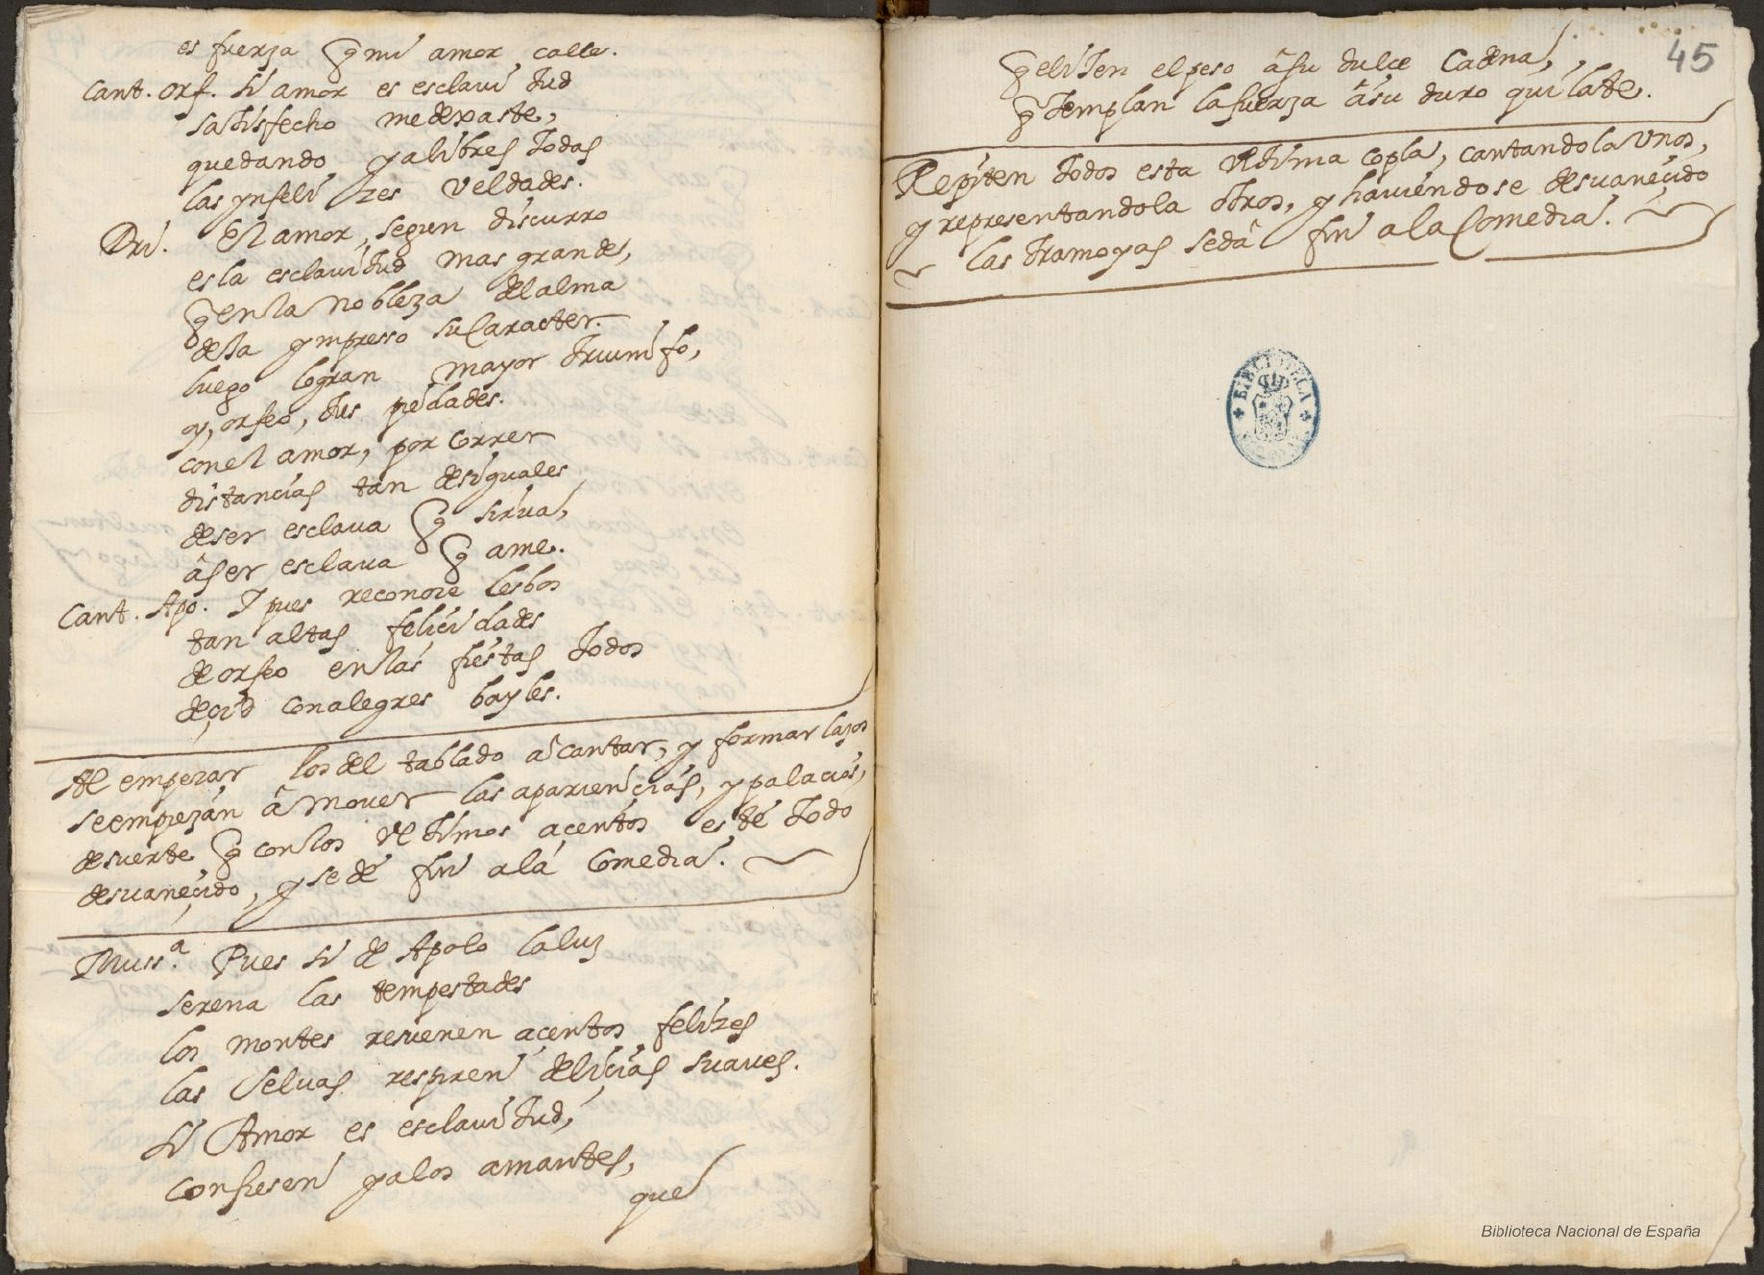 es fuerza q̃ mi amor calle.
Cant. Orf. Si amor es esclavitud
satisfecho me dexaste,
quedando ya libres todas
las ynfelizes veldades.
Dri. El amor, segun discurro
es la esclavitud mas grande,
q̃ en la nobleza del alma
dexa ympresso su Caracter.
luego logran mayor triumfo,
o, orfeo, tus piedades.
con el amor, por correr
distancias tan desiguales
de ser esclaua q̃ sirua,
â ser esclaua q̃ ame.
Cant. Apo. Y pues reconoce Lesbos
tan altas felicidades
de orfeo en las fiestas todos
decid con alegres bayles.
Al empezar los del tablado a cantar, y formar lazos
se empiezan â mouer las apariencias, y palacios,
de suerte q̃ con los vltimos açentos esté todo
desuaneçido, y se dé fin a la Comedia.
Muss.ª Pues si de Apolo la luz
serena las tempestades
los montes resuenen açentos felizes
las seluas respiren deliçias suaues.
Si Amor es esclauitud,
confiesen ya los amantes,
que
45
q̃ eliten el peso â su dulce Cadena,
q̃ templan la fuerza â su duro quilate.
Repiten todos esta vltima copla, cantandola vnos,
y representandola otros, y hauiendose desuaneçido
las tramoyas se dâ fin a la Comedia.
BIBLIOTECA
Biblioteca Nacional de España